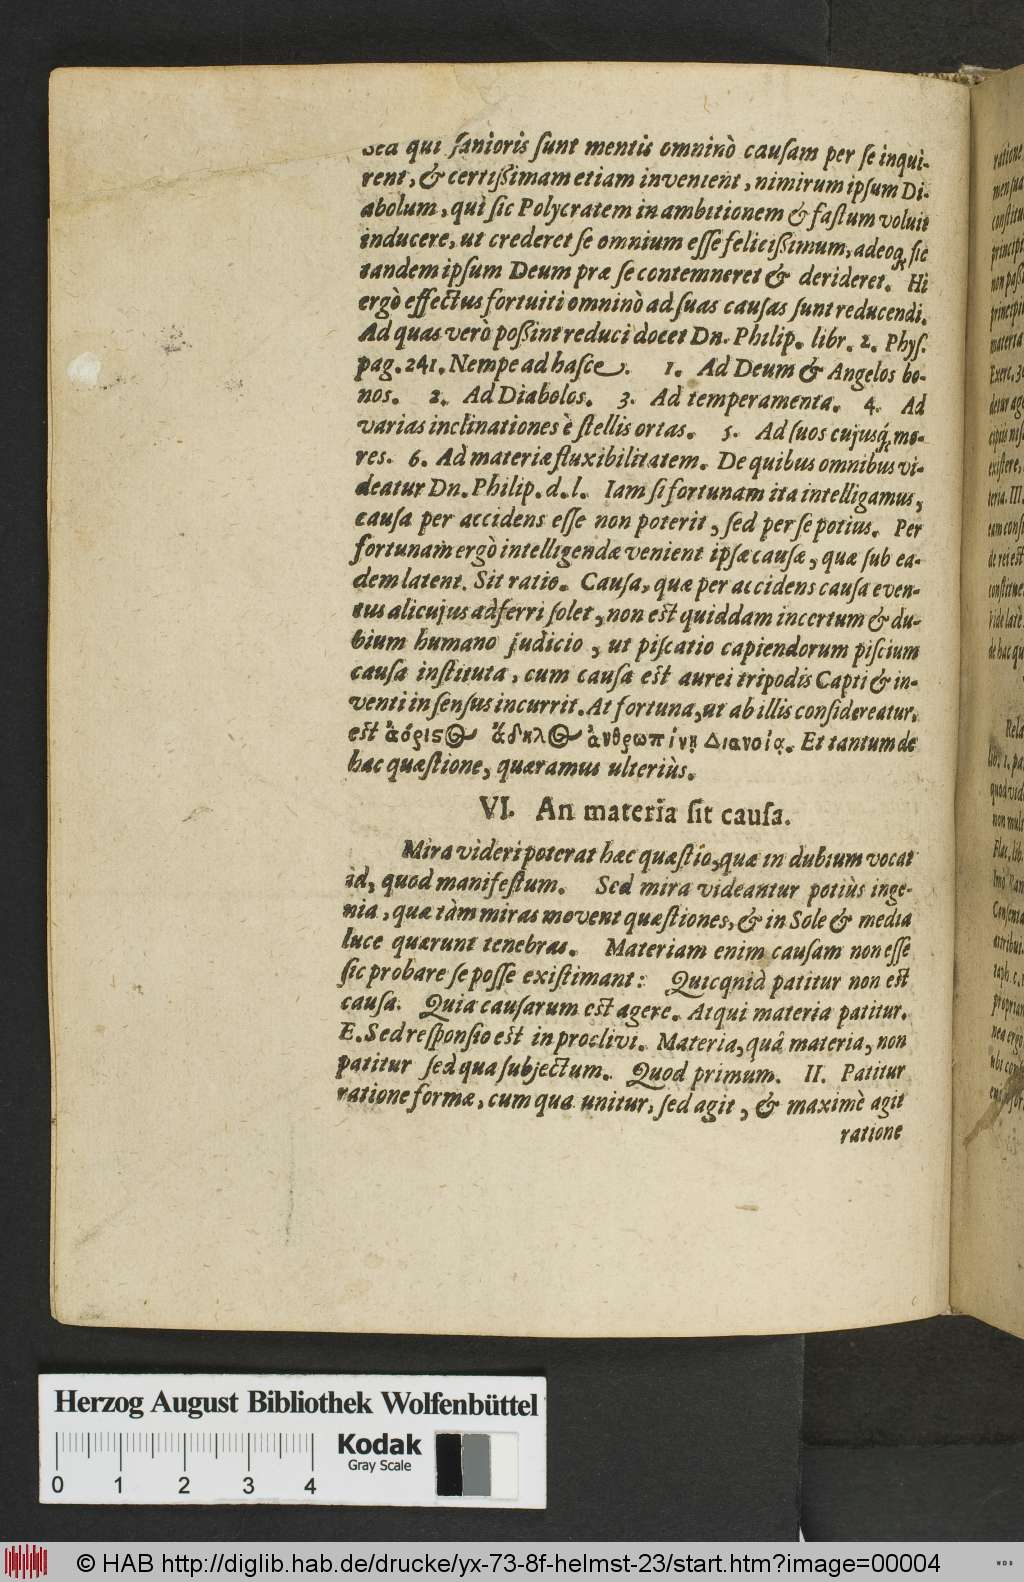 Sed qui ſanioris ſunt mentis omninò cauſam per ſe inqui-
rent, & certißimam etiam invenient, nimirum ipſum Di-
abolum, qui ſic Polycratem in ambitionem & faſtum voluit
inducere, ut crederet ſe omnium eſſe feliciſſimum, adeoq́ ſic
tandem ipſum Deum præ ſe contemneret & derideret. Hi
ergò effectus fortuiti omninò ad ſuas cauſas ſunt reducendi.
Ad quas verò poßint reduci docet Dn. Philip. libr. 2. Phyſ.
pag. 241. Nempe ad haſce. 1. Ad Deum & Angelos bo-
nos. 2. Ad Diabolos. 3. Ad temperamenta. 4. Ad
varias inclinationes è ſtellis ortas. 5. Ad ſuos cujusq́ mo-
res. 6. Ad materiæ fluxibilitatem. De quibus omnibus vi-
deatur Dn. Philip. d. l. Iam ſi fortunam ita intelligamus,
cauſa per accidens eſſe non poterit, ſed per ſe potius. Per
fortunam ergò intelligendæ venient ipſæ cauſæ, quæ ſub ea-
dem latent. Sit ratio. Cauſa, quæ per accidens cauſa even-
tus alicujus adferri ſolet, non eſt quiddam incertum & du-
bium humano judicio, ut piſcatio capiendorum piſcium
cauſa inſtituta, cum cauſa eſt aurei tripodis Capti & in-
venti in ſenſus incurrit. At fortuna, ut ab illis conſideratur,
eſt ἀόριστος ἄδηλος ἀνθρωπίνῃ Διανοίᾳ. Et tantum de
hac quæſtione, quæramus ulteriùs.
VI. An materia ſit cauſa.
Mira videri poterat hæc quæſtio, quæ in dubium vocat
id, quod manifeſtum. Sed mira videantur potiùs inge-
nia, quæ tàm miras movent quæſtiones, & in Sole & media
luce quærunt tenebras. Materiam enim cauſam non eſſe
ſic probare ſe poſſe exiſtimant: Quicqnid patitur non eſt
cauſa. Quia cauſarum eſt agere. Atqui materia patitur.
E. Sed reſponſio eſt in proclivi. Materia, quâ materia, non
patitur ſed qua ſubjectum. Quod primum. II. Patitur
ratione formæ, cum qua unitur, ſed agit, & maximè agit
ratione
ratione
Herzog August Bibliothek Wolfenbüttel
0 1 2 3 4
Kodak
Gray Scale
© HAB http://diglib.hab.de/drucke/yx-73-8f-helmst-23/start.htm?image=00004